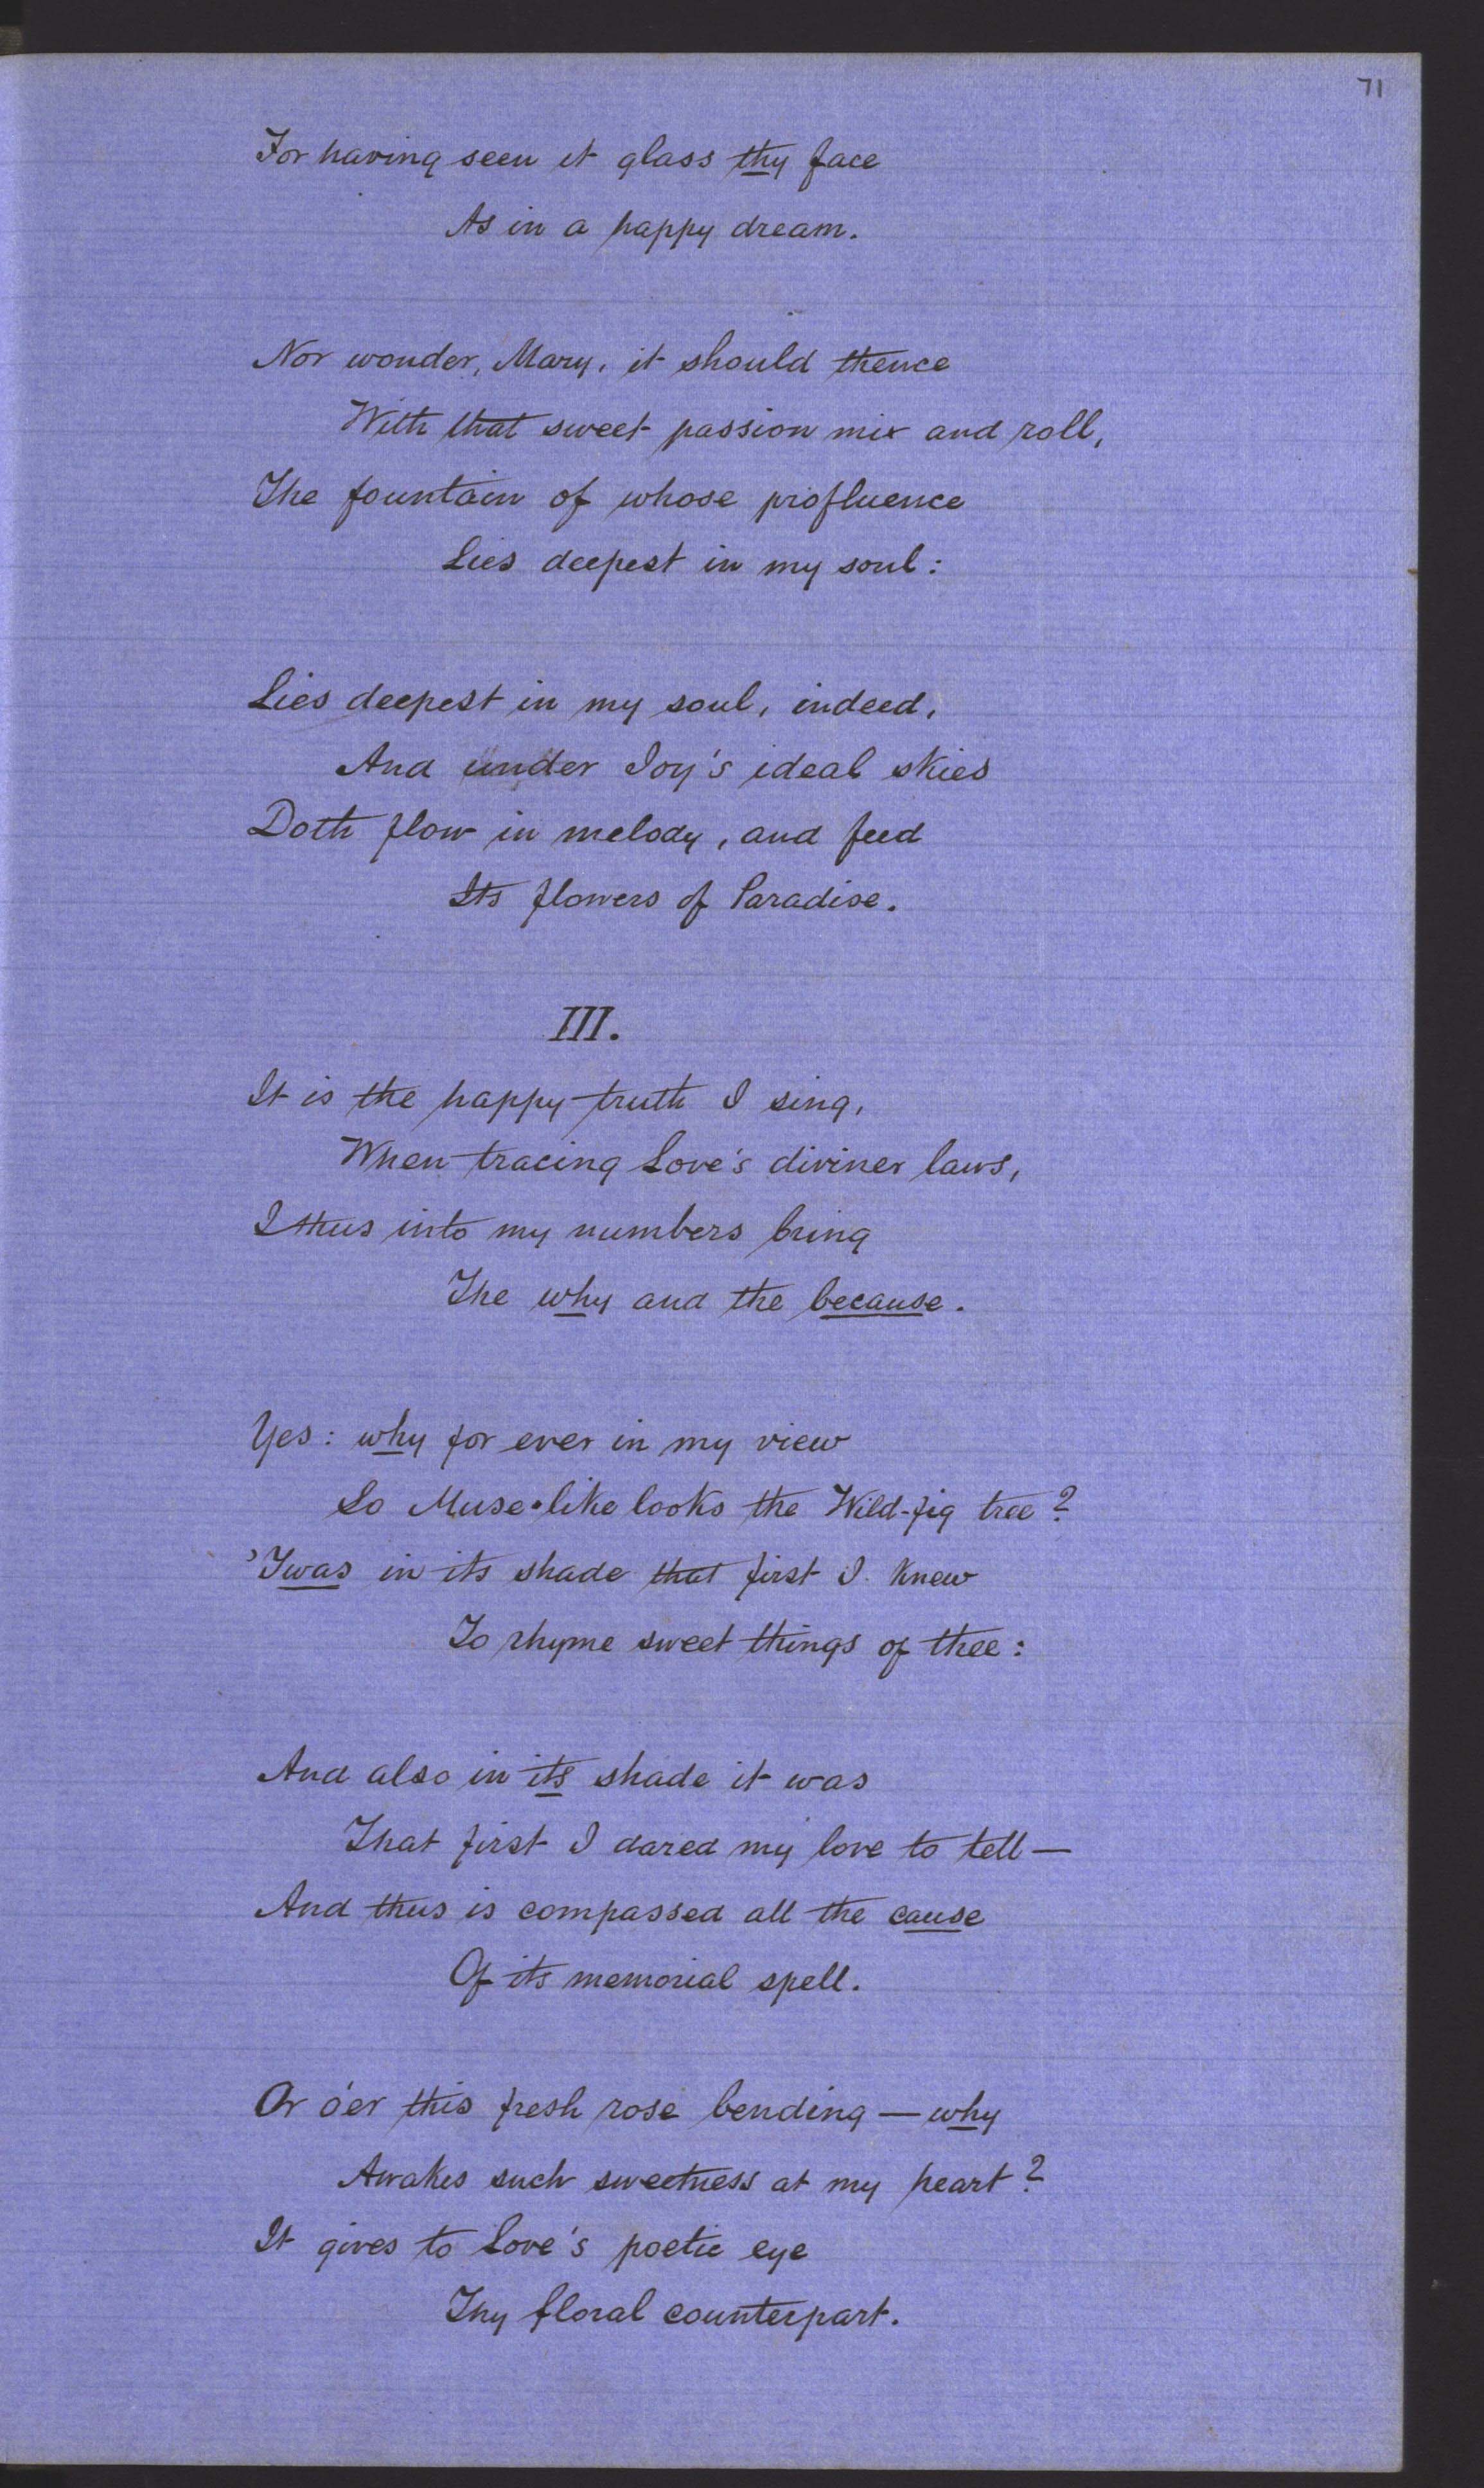 71
For having seen it glass thy face
As in a happy dream.
Nor wonder, Mary, it should thence
With that sweet passion mix and roll,
The fountain of whose profluence
Lies deepest in my soul:
Lies deepest in my soul, indeed,
And under Joy's ideal skies
Doth flow in melody, and feed
Its flowers of Paradise.
III.
It is the happy truth I sing,
When tracing Love's diviner laws,
I thus into my numbers bring
The why and the because.
Yes: why for ever in my view
So Muse-like looks the Wild-fig tree?
'Twas in its shade that first I knew
To rhyme sweet things of thee:
And also in its shade it was
That first I dared my love to tell—
And thus is compassed all the cause
Of its memorial spell.
Or o'er this fresh rose bending — why
Awakes such sweetness at my heart?
It gives to Love's poetic eye
Thy floral counterpart.